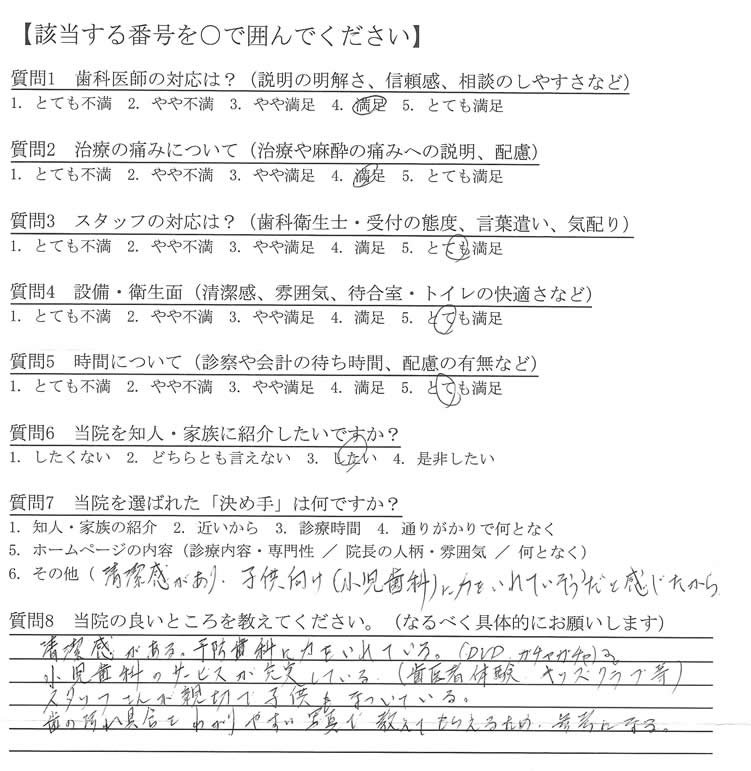 【該当する番号を〇で囲んでください】
質問1　歯科医師の対応は？（説明の明解さ、信頼感、相談のしやすさなど）
1. とても不満　2. やや不満　3. やや満足　4. 満足　5. とても満足
質問2　治療の痛みについて（治療や麻酔の痛みへの説明、配慮）
1. とても不満　2. やや不満　3. やや満足　4. 満足　5. とても満足
質問3　スタッフの対応は？（歯科衛生士・受付の態度、言葉遣い、気配り）
1. とても不満　2. やや不満　3. やや満足　4. 満足　5. とても満足
質問4　設備・衛生面（清潔感、雰囲気、待合室・トイレの快適さなど）
1. とても不満　2. やや不満　3. やや満足　4. 満足　5. とても満足
質問5　時間について（診察や会計の待ち時間、配慮の有無など）
1. とても不満　2. やや不満　3. やや満足　4. 満足　5. とても満足
質問6　当院を知人・家族に紹介したいですか？
1. したくない　2. どちらとも言えない　3. したい　4. 是非したい
質問7　当院を選ばれた「決め手」は何ですか？
1. 知人・家族の紹介　2. 近いから　3. 診療時間　4. 通りがかりで何となく
5. ホームページの内容（診療内容・専門性 ／ 院長の人柄・雰囲気 ／ 何となく）
6. その他（清潔感があり、子供向け（小児歯科）に力をいれていそうだと感じたから
質問8　当院の良いところを教えてください。（なるべく具体的にお願いします）
清潔感がある。予防歯科に力をいれている。（DVD、ガチャガチャ）
小児歯科のサービスが充実している。（歯医者体験、キッズクラブ等）
スタッフさんが親切で子供もなついている。
歯の汚れ具合をわかりやすい写真で教えてもらえるため、参考になる。